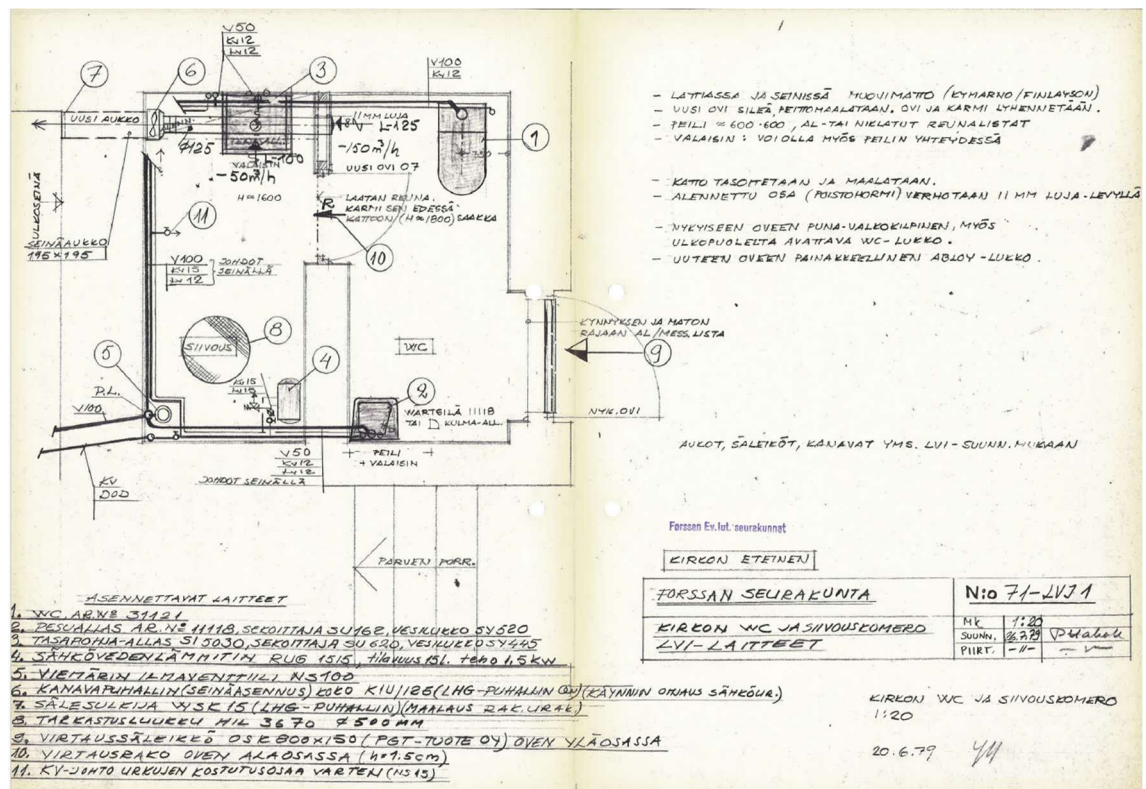 V50
KV12
LV12
7
6
3
V100
KV12
UUSI AUKKO
11 MM LUJA
L-125
1
Ø125
-150m³/h
VALAISIN
L-100
-50m³/h
UUSI OVI 07
H≈1600
ULKOSEINÄ
LAATAN REUNA.
KARMI SEN EDESSÄ
KATTOON (H≈1800) SAAKKA
R
11
SEINÄAUKKO
195x195
10
V100
KV15
LV12
JOHDOT
SEINÄLLÄ
8
SIIVOUS
KYNNYKSEN JA MATON
RAJAAN AL/MESS. LISTA
WC
9
5
4
2
P.L.
KV15
LV15
V100
WÄRTSILÄ 11118
TAI D KULMA-ALL.
NYK. OVI
V50
KV12
LV12
PEILI
+ VALAISIN
JOHDOT SEINÄLLÄ
KV
DOD
PARVEN PORR.
- LATTIASSA JA SEINISSÄ MUOVIMATTO (KYMARNO/FINLAYSON)
- UUSI OVI SILEÄ, PEITTOMAALATAAN. OVI JA KARMI LYHENNETÄÄN.
- PEILI ≈ 600·600, AL-TAI NIKLATUT REUNALISTAT
- VALAISIN: VOI OLLA MYÖS PEILIN YHTEYDESSÄ
- KATTO TASOITETAAN JA MAALATAAN.
- ALENNETTU OSA (POISTOHORMI) VERHOTAAN 11 MM LUJA-LEVYLLÄ
- NYKYISEEN OVEEN PUNA-VALKOKILPINEN, MYÖS
ULKOPUOLELTA AVATTAVA WC-LUKKO.
- UUTEEN OVEEN PAINAKKEELLINEN ABLOY-LUKKO.
AUKOT, SÄLEIKÖT, KANAVAT YMS. LVI-SUUNN. MUKAAN
Forssan Ev.lut. seurakunnat
KIRKON ETEINEN
FORSSAN SEURAKUNTA
N:o 71-LVI 1
KIRKON WC JA SIIVOUSKOMERO
LVI-LAITTEET
MK 1:20
SUUNN. 26.7.79
PIIRT. -"-
KIRKON WC JA SIIVOUSKOMERO
1:20
20.6.79
ASENNETTAVAT LAITTEET
1. WC. AR.Nº 31121
2. PESUALLAS AR.Nº 11118, SEKOITTAJA SU162, VESILUKKO SY520
3. TASAPOHJA-ALLAS SI 5030, SEKOITTAJA SU 620, VESILUKKO SY445
4. SÄHKÖVEDENLÄMMITIN RUG 151S, tilavuus 15l. teho 1,5kW
5. VIEMÄRIN ILMAVENTTIILI NS100
6. KANAVAPUHALLIN (SEINÄASENNUS) KOKO KIU/125 (LHG-PUHALLIN OY) (KÄYNNIN OHJAUS SÄHKÖUR.)
7. SÄLESULKIJA WSK 15 (LHG-PUHALLIN) (MAALAUS RAK.URAK.)
8. TARKASTUSLUUKKU HIL 3670 Ø500MM
9. VIRTAUSSÄLEIKKÖ OSK 800x150 (PGT-TUOTE OY) OVEN YLÄOSASSA
10. VIRTAUSRAKO OVEN ALAOSASSA (h=1.5cm)
11. KV-JOHTO URKUJEN KOSTUTUSOSAA VARTEN (NS15)